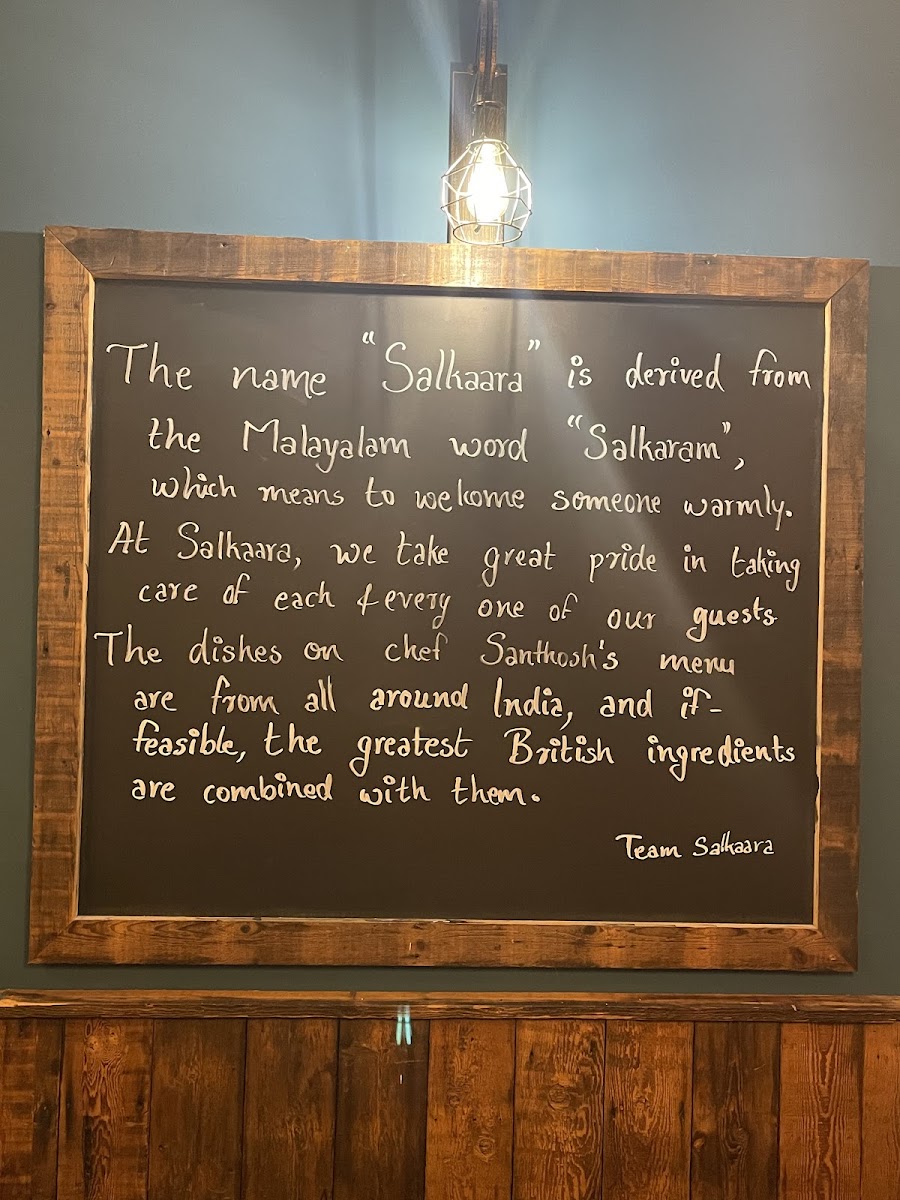 The name "Salkaara" is derived from
the Malayalam word "Salkaram",
which means to welcome someone warmly.
At Salkaara, we take great pride in taking
care of each & every one of our guests
The dishes on chef Santhosh's menu
are from all around India, and if-
feasible, the greatest British ingredients
are combined with them.
Team Salkaara